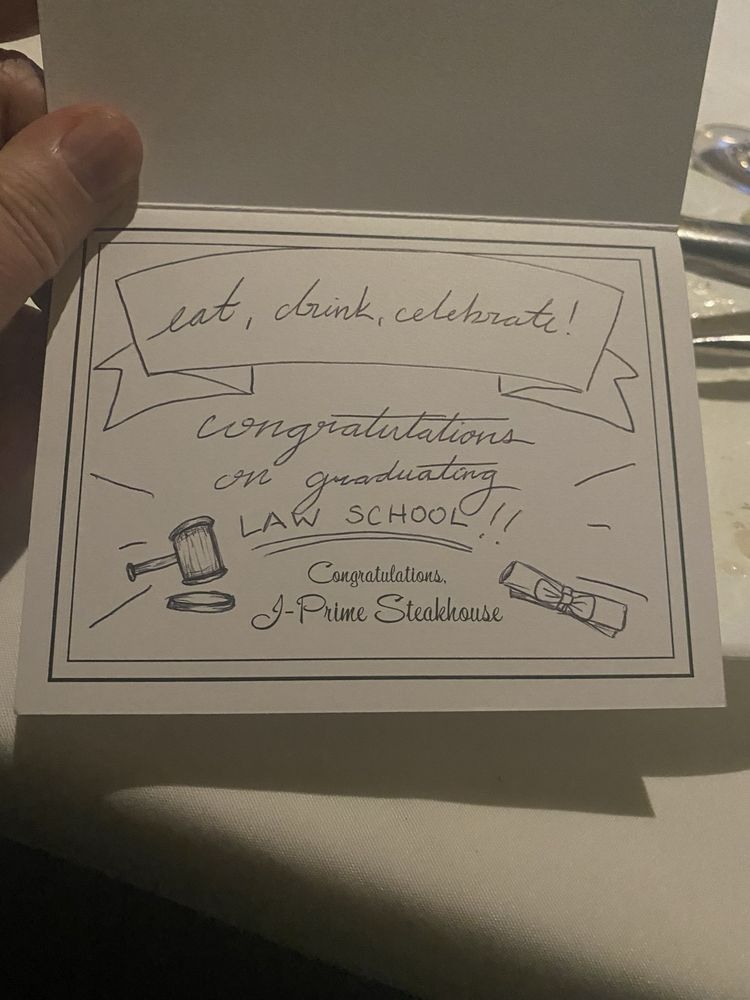 eat, drink, celebrate!
congratulations
on graduating
LAW SCHOOL!!
Congratulations,
J-Prime Steakhouse